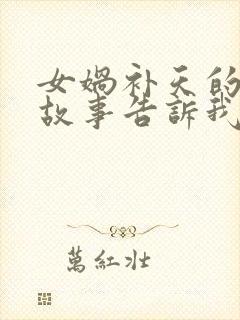 女媧补天的
故事告訴我
萬紅壮